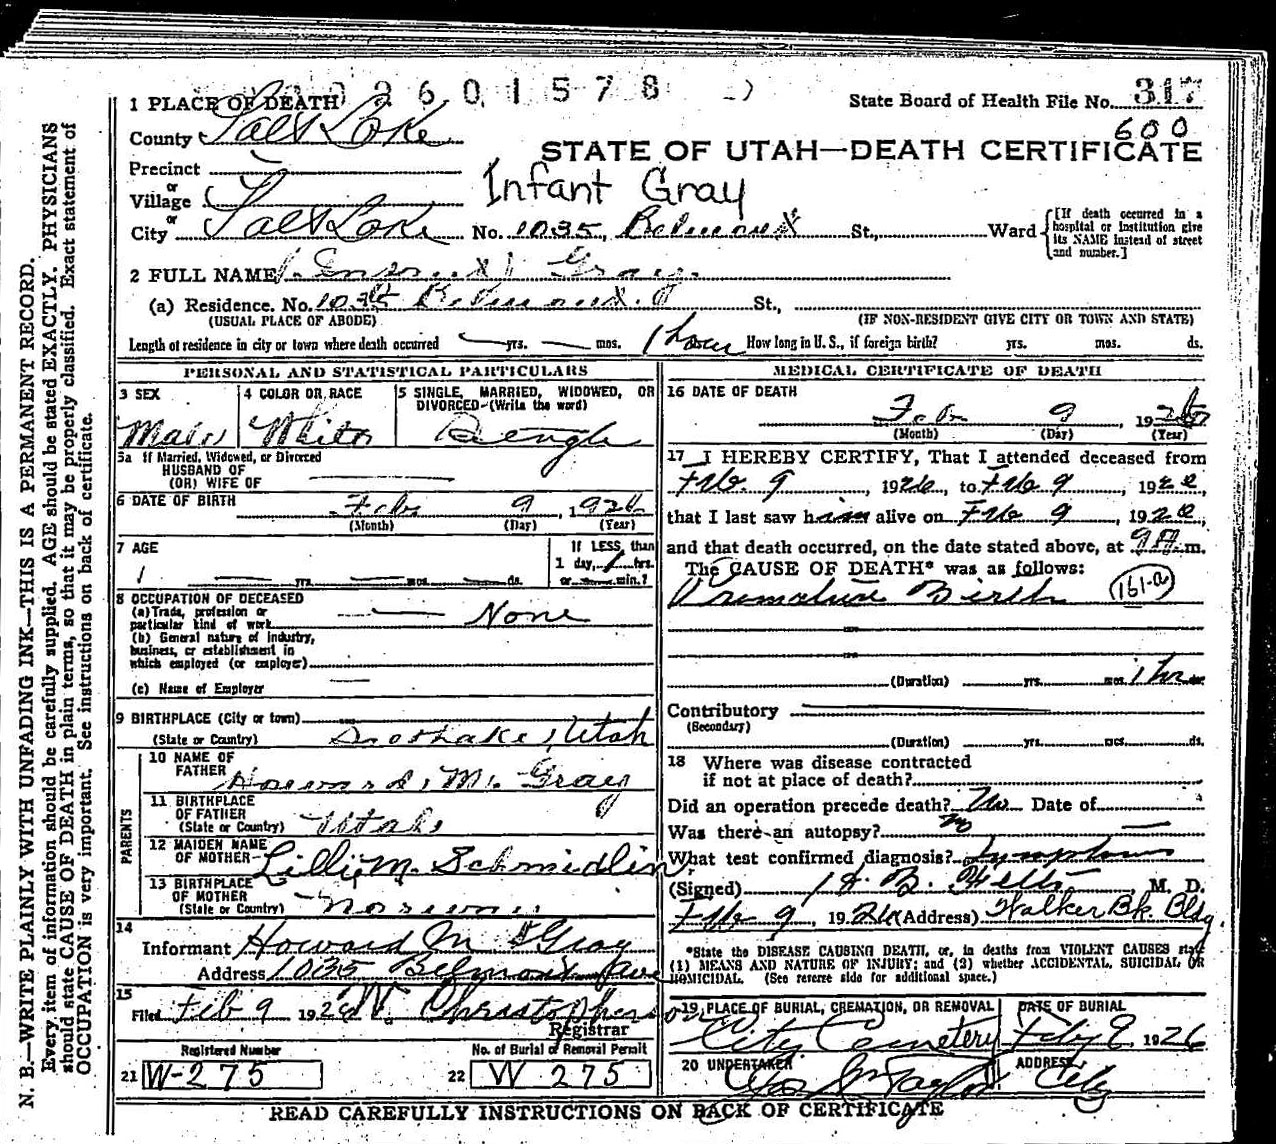 2601578
State Board of Health File No. 317
600
1 PLACE OF DEATH
County Salt Lake
STATE OF UTAH—DEATH CERTIFICATE
Precinct
or
Village
Infant Gray
or
City Salt Lake No. 1035, Belmont St., Ward
[If death occurred in a
hospital or institution give
its NAME instead of street
and number.]
2 FULL NAME Gray.
(a) Residence. No. 1035 Belmont. St.,
(USUAL PLACE OF ABODE) (IF NON-RESIDENT GIVE CITY OR TOWN AND STATE)
Length of residence in city or town where death occurred — yrs. — mos. 1 hour How long in U. S., if foreign birth? yrs. mos. ds.
PERSONAL AND STATISTICAL PARTICULARS
3 SEX 4 COLOR OR RACE 5 SINGLE, MARRIED, WIDOWED, OR
DIVORCED-(Write the word)
Male White Single
5a If Married, Widowed, or Divorced
HUSBAND OF
(OR) WIFE OF
6 DATE OF BIRTH Feb 9, 1926
(Month) (Day) (Year)
7 AGE If LESS than
1 day, 1 hrs.
yrs. mos. ds. or min.?
8 OCCUPATION OF DECEASED
(a) Trade, profession or
particular kind of work — None
(b) General nature of industry,
business, or establishment in
which employed (or employer)
(c) Name of Employer
9 BIRTHPLACE (City or town)
(State or Country) Salt Lake, Utah
PARENTS
10 NAME OF
FATHER Howard M. Gray
11 BIRTHPLACE
OF FATHER
(State or Country) Utah
12 MAIDEN NAME
OF MOTHER Lilli M. Schmidlin
13 BIRTHPLACE
OF MOTHER
(State or Country)
14
Informant Howard M Gray
Address 1035 Belmont Ave
15
Filed Feb 9 1926 W. Christopherson
Registrar
Registered Number No. of Burial or Removal Permit
21 W-275 22 W 275
MEDICAL CERTIFICATE OF DEATH
16 DATE OF DEATH
Feb 9, 1926
(Month) (Day) (Year)
17 I HEREBY CERTIFY, That I attended deceased from
Feb. 9, 1926, to Feb 9, 1926,
that I last saw him alive on Feb 9, 1926,
and that death occurred, on the date stated above, at 9 A. m.
The CAUSE OF DEATH* was as follows:
Premature Birth 161-a
(Duration) yrs. mos. 1 hr
Contributory
(Secondary)
(Duration) yrs. mos. ds.
18 Where was disease contracted
if not at place of death?
Did an operation precede death? No Date of
Was there an autopsy? no
What test confirmed diagnosis? Symptoms
(Signed) M. D.
Feb 9, 1926 (Address) Walker Bk Bldg.
*State the DISEASE CAUSING DEATH, or, in deaths from VIOLENT CAUSES state
(1) MEANS AND NATURE OF INJURY; and (2) whether ACCIDENTAL, SUICIDAL OR
HOMICIDAL. (See reverse side for additional space.)
19 PLACE OF BURIAL, CREMATION, OR REMOVAL DATE OF BURIAL
City Cemetery Feb 9 1926
20 UNDERTAKER ADDRESS
Taylor City
READ CAREFULLY INSTRUCTIONS ON BACK OF CERTIFICATE
N. B.—WRITE PLAINLY WITH UNFADING INK—THIS IS A PERMANENT RECORD.
Every item of information should be carefully supplied. AGE should be stated EXACTLY. PHYSICIANS
should state CAUSE OF DEATH in plain terms, so that it may be properly classified. Exact statement of
OCCUPATION is very important. See instructions on back of certificate.